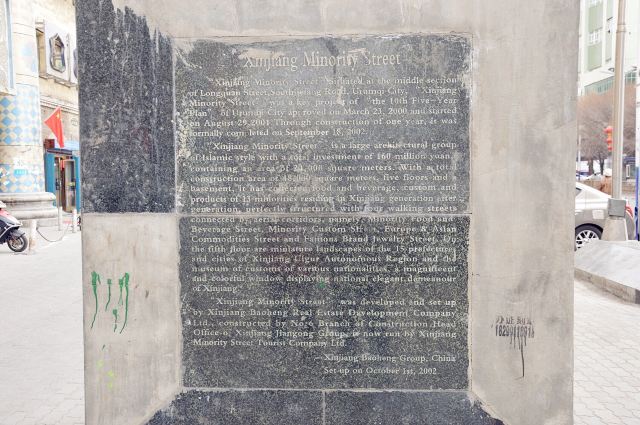 Xinjiang Minority Street
"Xinjiang Minority Street" Situated at the middle section
of Longquan Street, South Jiefang Road, Urumqi City, "Xinjiang
Minority Street" was a key project of "the 10th Five-Year
Plan" of Urumqi City approved on March 23, 2000 and started
on August 29, 2001. Through construction of one year, It was
formally completed on September 18, 2002.
"Xinjiang Minority Street" is a large architectural group
of Islamic style with a total investment of 160 million yuan,
containing an area of square meters. With a total
construction area of square meters, five floors and a
basement, it has collected food and beverage, custom and
products of 13 minorities residing in Xinjiang generation after
generation, perfectly structured with four walking streets
connected by aerial corridors, namely Minority Food and
Beverage Street, Minority Custom Street, Europe & Asian
Commodities Street and Famous Brand Jewelry Street. On
the fifth floor are miniature landscapes of the 15 prefectures
and cities of Xinjiang Uigur Autonomous Region and the
museum of customs of various nationalities, a magnificent
and colorful window displaying national elegant demeanor
of Xinjiang.
"Xinjiang Minority Street" was developed and set up
by Xinjiang Baoheng Real Estate Development Company
Ltd., constructed by No.6 Branch of Construction Head
Office of Xinjiang Jiangong Group, is now run by Xinjiang
Minority Street Tourist Company Ltd.
Xinjiang Baoheng Group, China
Set up on October 1st, 2002